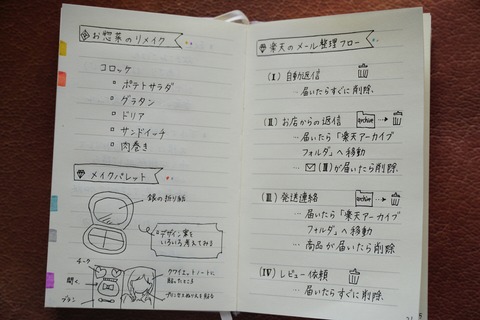 お惣菜のリメイク
コロッケ
ポテトサラダ
グラタン
ドリア
サンドイッチ
肉巻き
メイクパレット
銀の折り紙
デザイン案を
いろいろ考えてみる
チーク
開く
ブラシ
クワイエットノートに
貼ったところ
楽天のメール整理フロー
(Ⅰ) 自動返信
… 届いたらすぐに削除.
(Ⅱ) お店からの返信 archive
… 届いたら「楽天アーカイブ
フォルダ」へ移動
… (Ⅲ)が届いたら削除.
(Ⅲ) 発送連絡 archive
… 届いたら「楽天アーカイブ
フォルダ」へ移動
… 商品が届いたら削除
(Ⅳ) レビュー依頼
… 届いたらすぐに削除